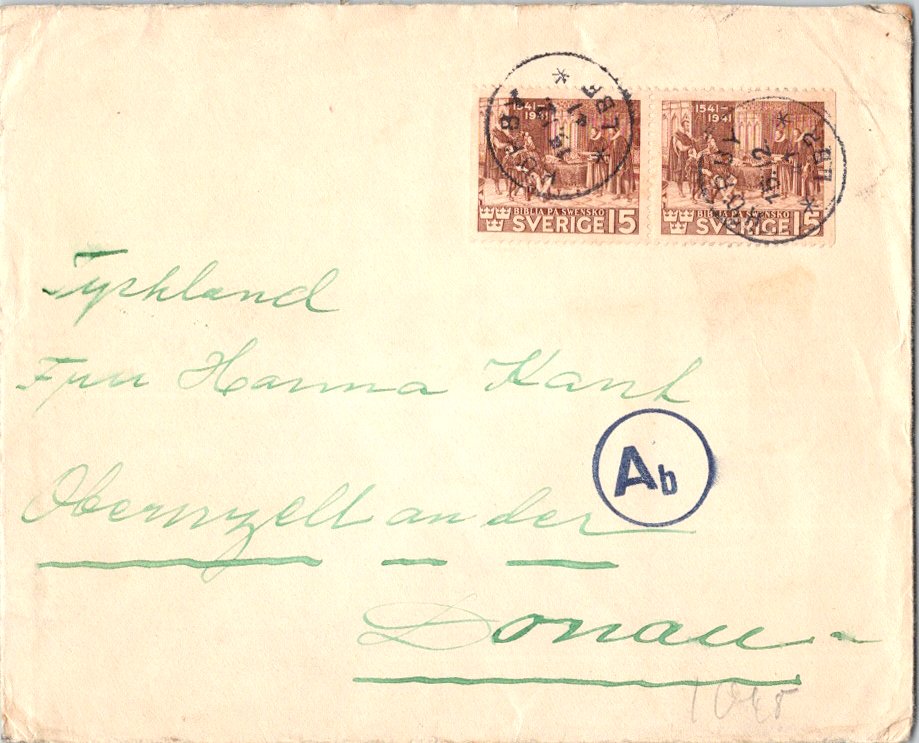 1541–
1941
BIBLIA PÅ SWENSKO
SVERIGE 15
1541–
1941
BIBLIA PÅ SWENSKO
SVERIGE 15
LBR
12
LBR
Tyskland
Fru Hanna Kant
Ab
Obernzell an der
Donau